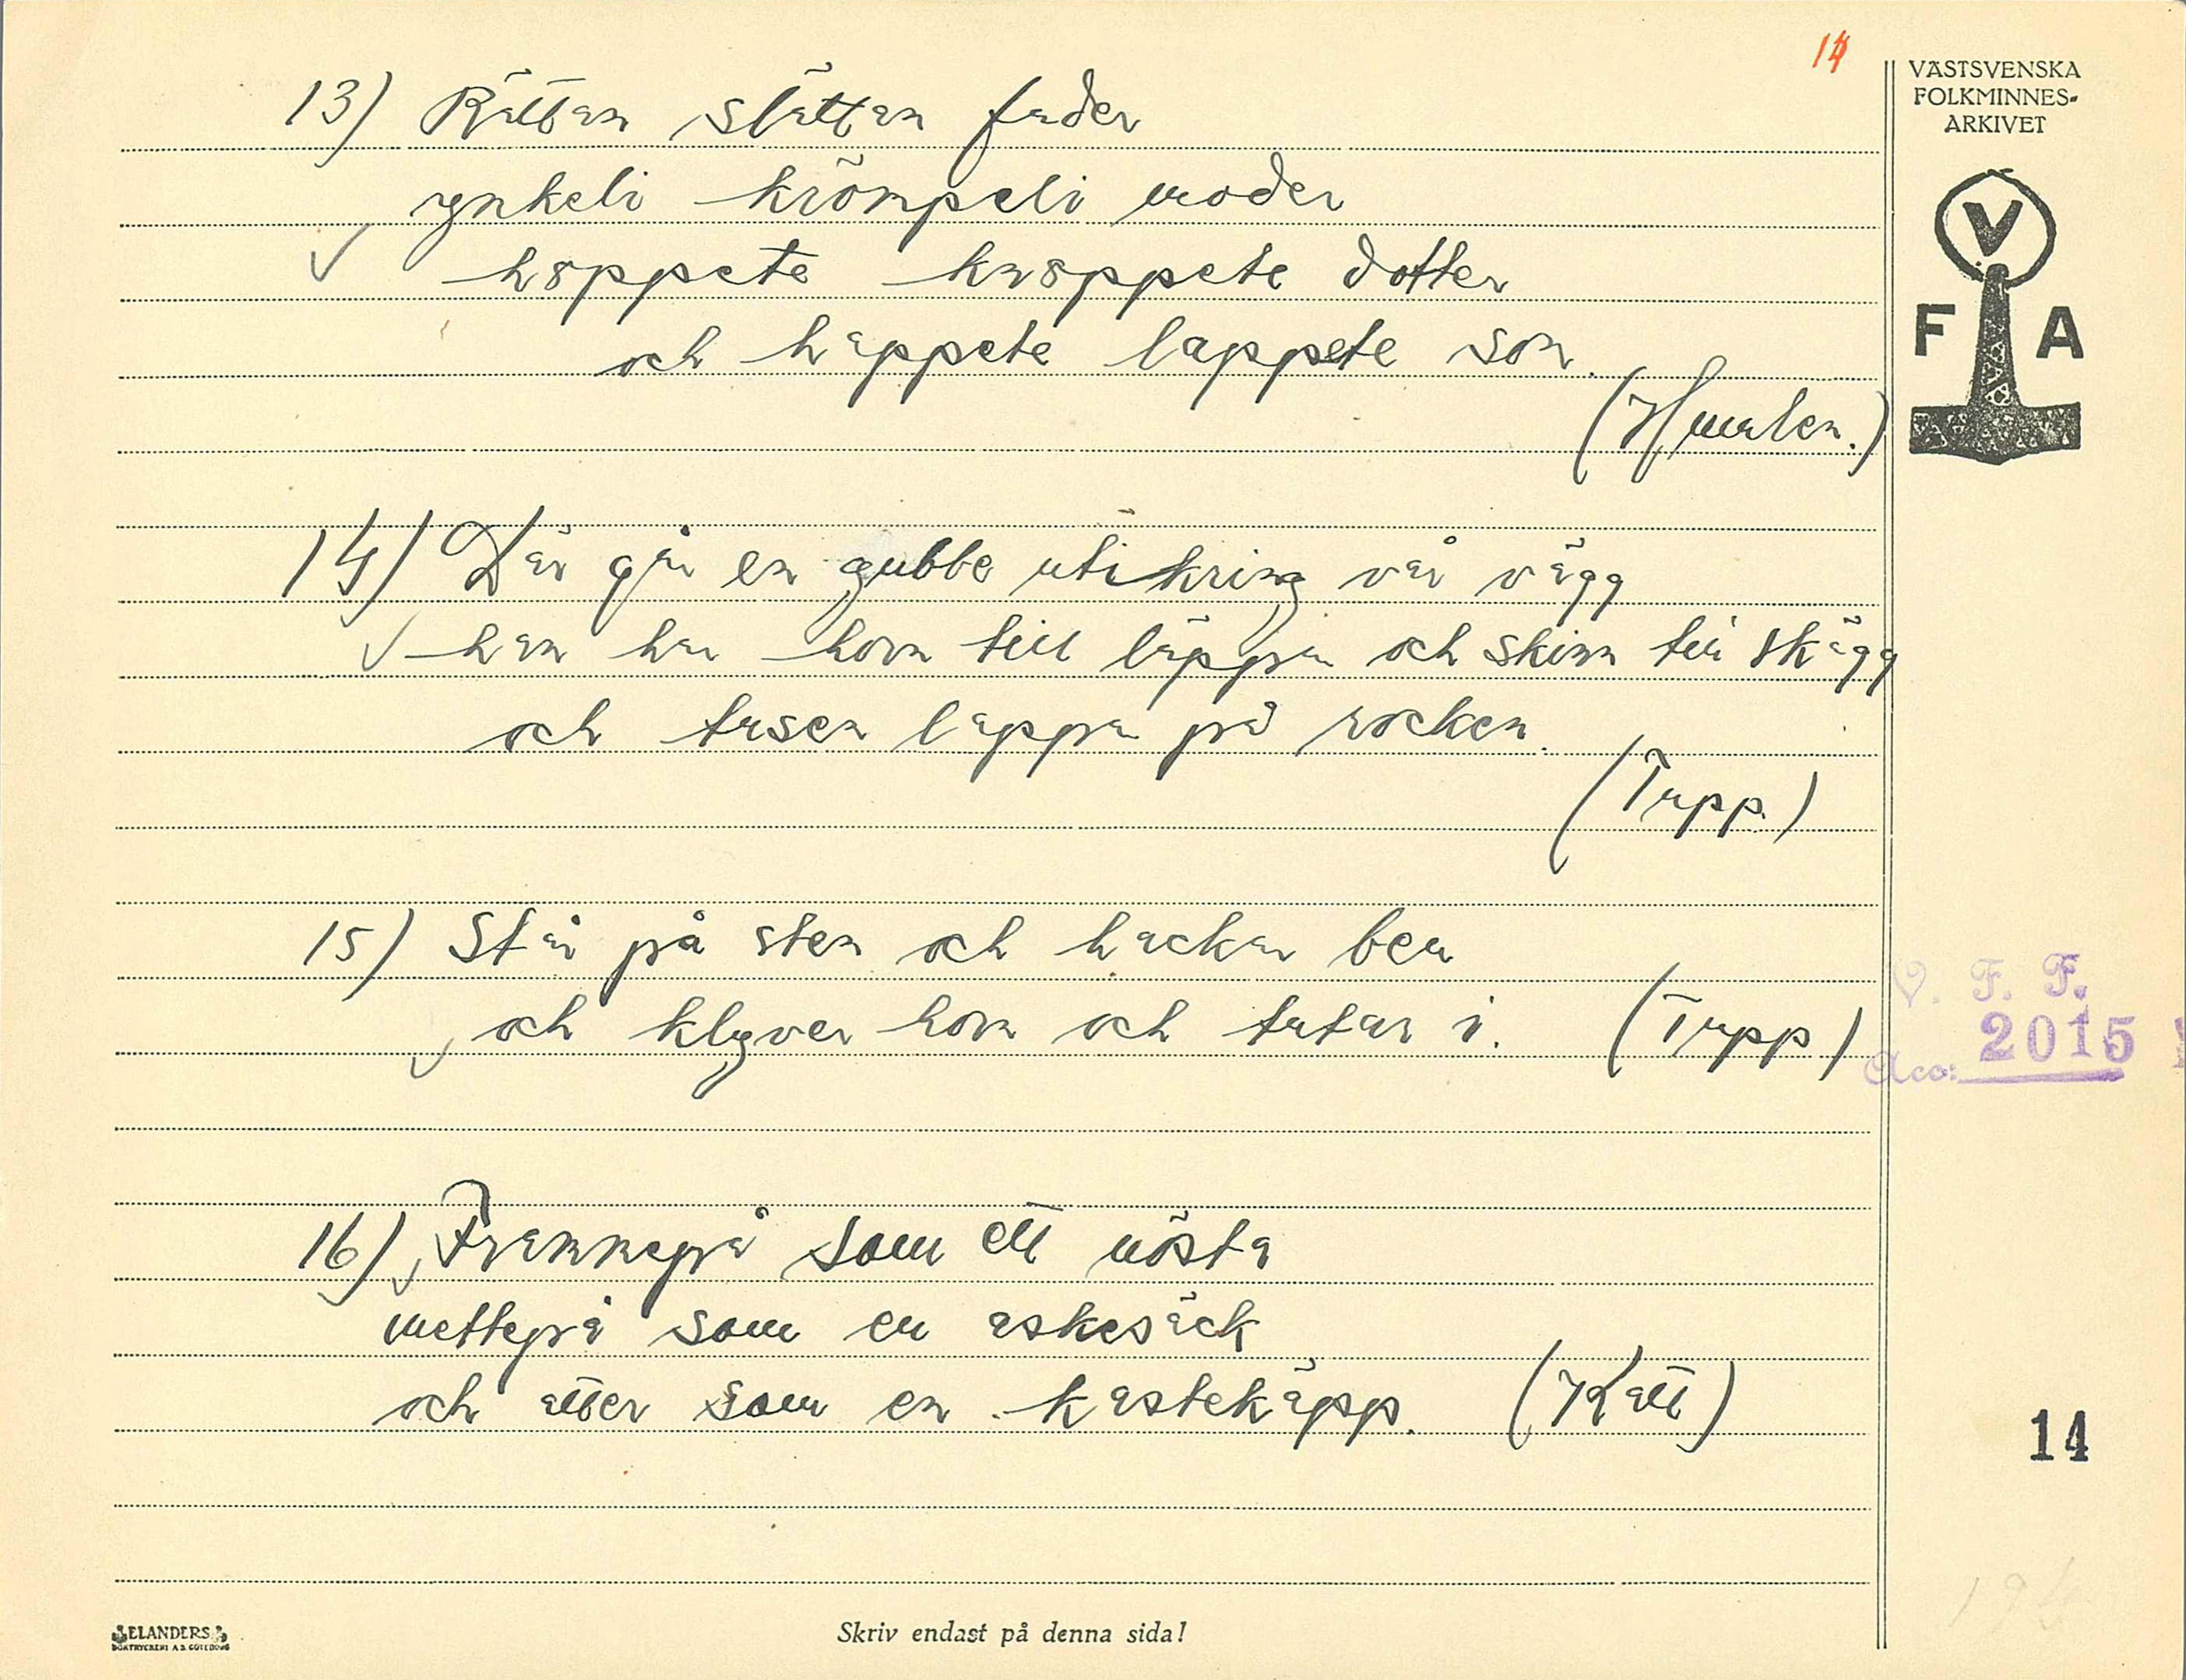 14
VÄSTSVENSKA
FOLKMINNES-
ARKIVET
V
F A
13) Rättan slättan fader
ynkeli krömpeli moder
hoppete knoppete dotter
och happete lappete son.
(Humlen.)
14) Där går en gubbe utikring vår vägg
han har horn till läppar och skinn till skägg
och tusen lappar på rocken.
(Tupp.)
15) Står på sten och hackar ben
och klyver horn och tutar i. (Tupp)
V. F. F.
Acc: 2015
16) Frammepå som ett nösta
mettepå som en askesäck
och atter som en kastekäpp. (Katt)
14
ELANDERS
BOKTRYCKERI A.B. GÖTEBORG
Skriv endast på denna sida!